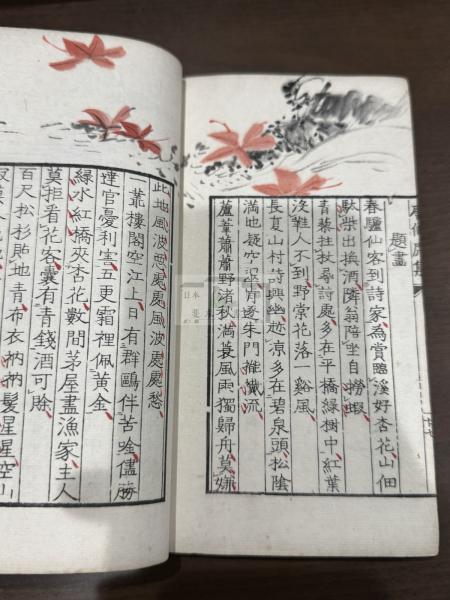 題畫
春驢仙客到詩家為賞臨溪好杏花山佃
馱柴出換酒隣翁陪坐自撈蝦
青藜拄杖尋詩處多在平橋綠樹中紅葉
沒脛人不到野棠花落一谿風
長夏山村詩興幽趂涼多在碧泉頭松陰
滿地疑空肯逐朱門襶流
蘆葦蕭蕭野渚秋滿蓑風雨獨歸舟莫嫌
此地風波惡處處風波處處愁
一叢樓閣空江上日有群鷗伴苦吟儘勝
達官憂利害五更霜裡佩黃金
綠水紅橋夾杏花數間茅屋盡漁家主人
莫拒看花客囊有青錢酒可賖
百尺松杉貼地青布衣衲衲髮星星空山
日本